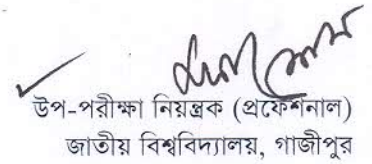 উপ-পরীক্ষা নিয়ন্ত্রক (প্রফেশনাল)
জাতীয় বিশ্ববিদ্যালয়, গাজীপুর